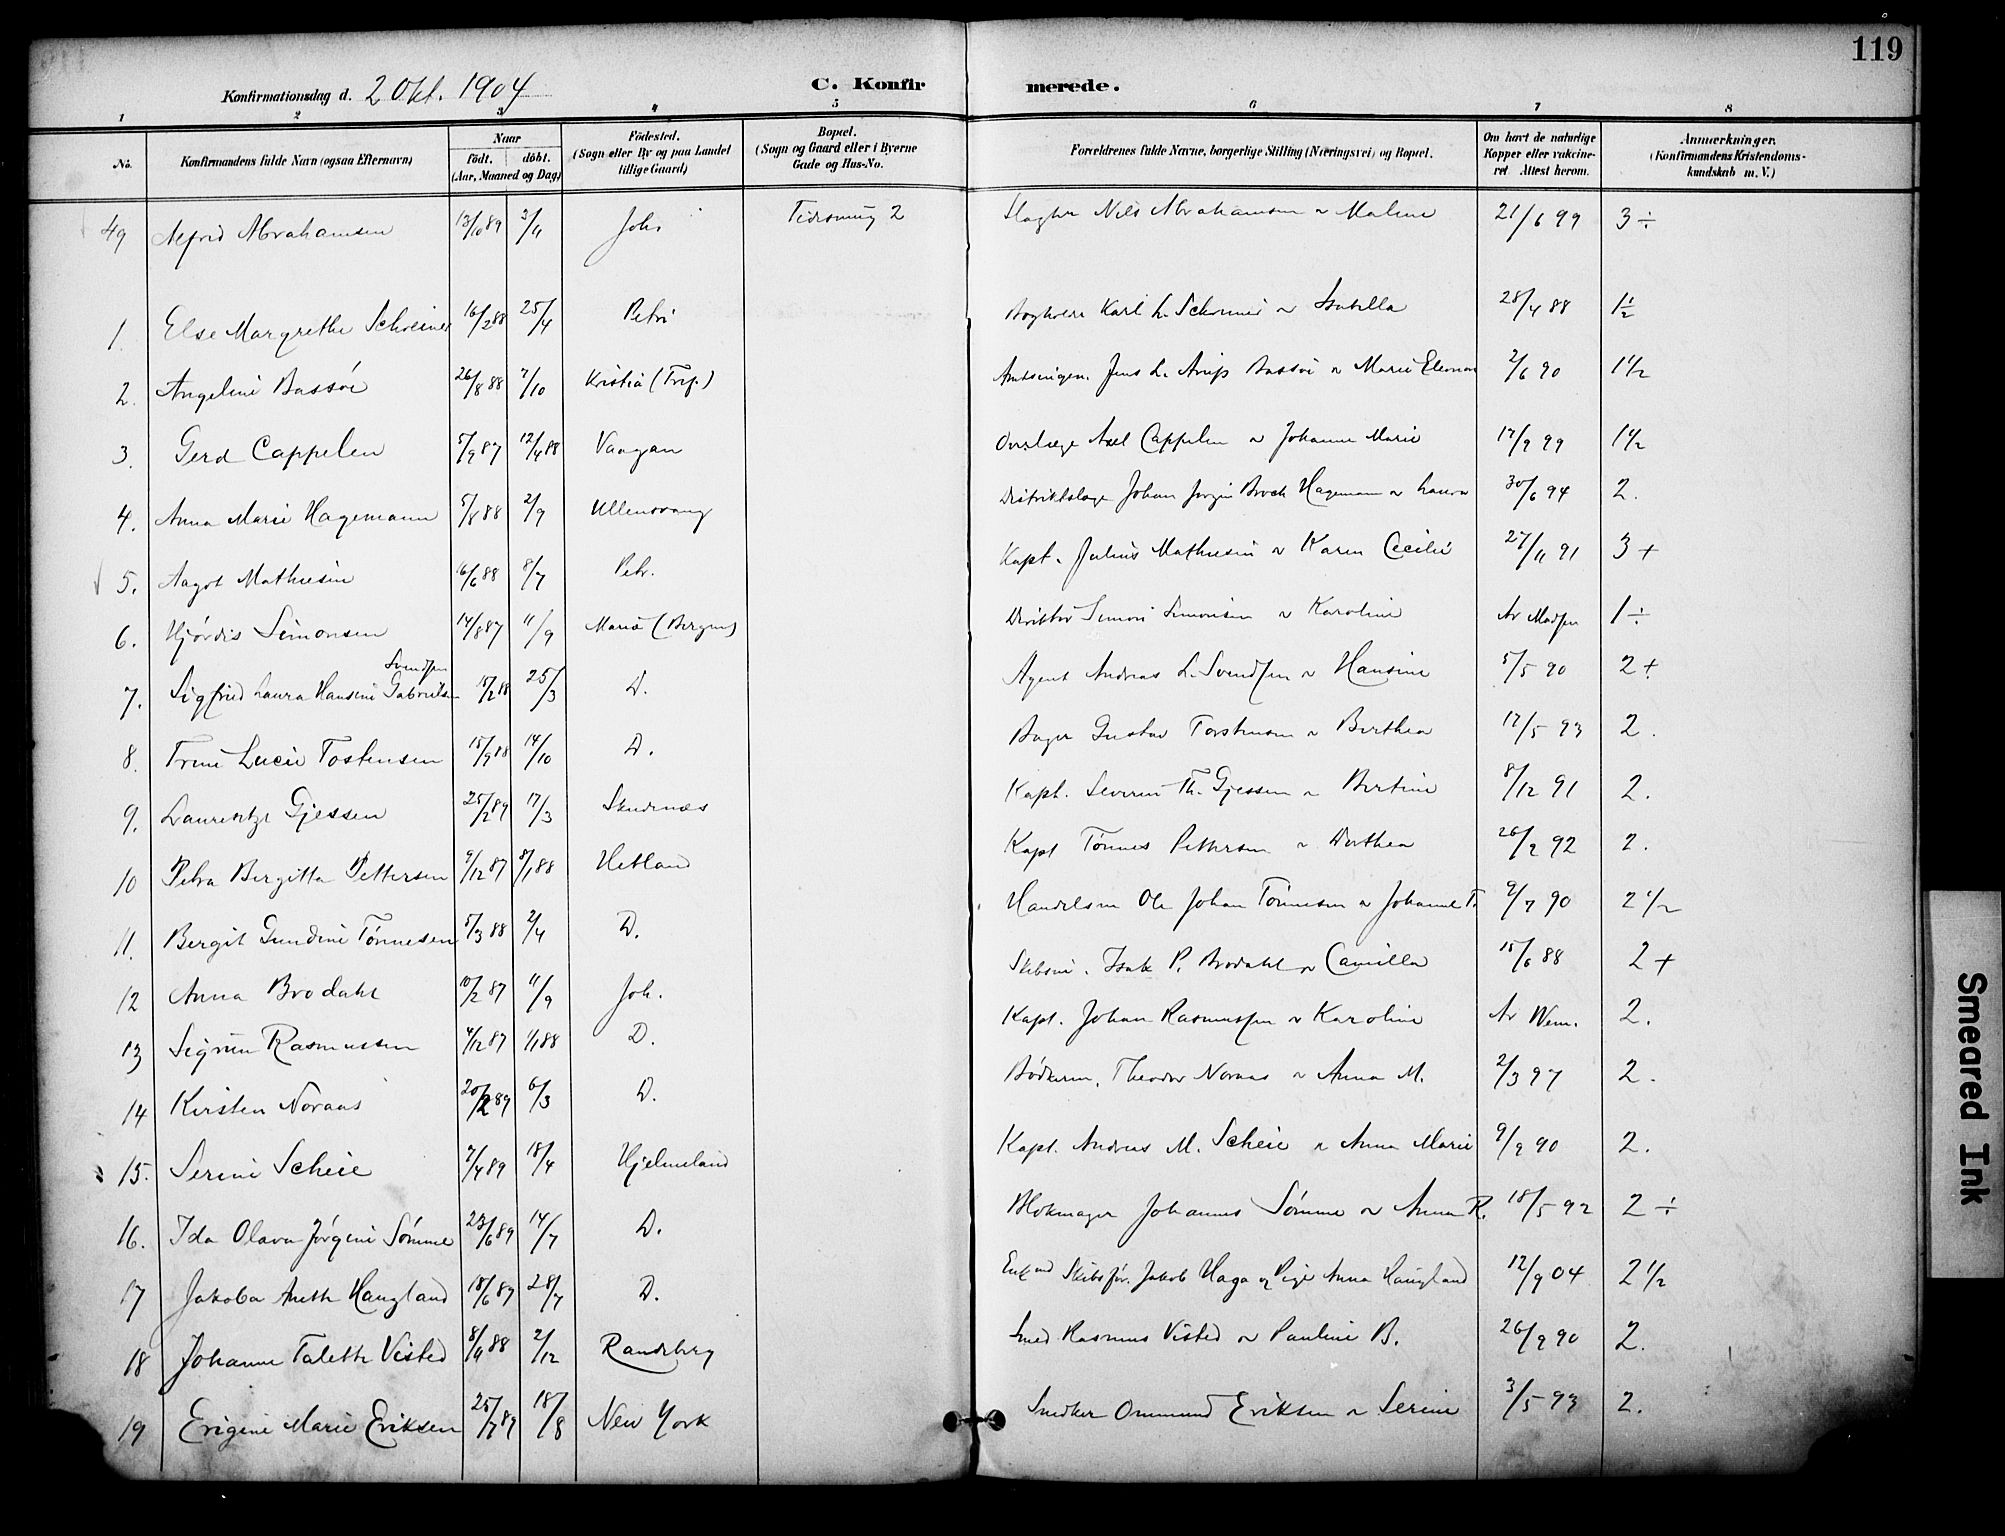 119
Konfirmationsdag d. 2 Okt. 1904
C. Konfirmerede.
1 2 3 4 5 6 7 8
No. Konfirmandens fulde Navn (ogsaa Efternavn) Naar født. døbt. (Aar, Maaned og Dag) Fødested. (Sogn eller By og paa Landet tillige Gaard) Bopæl. (Sogn og Gaard eller i Byerne Gade og Hus-No. Forældrenes fulde Navne, borgerlige Stilling (Næringsvei) og Bopæl. Om havt de naturlige Kopper eller vakcineret. Attest herom. Anmærkninger. (Konfirmandens Kristendomskundskab m. V.)
49 Alfrid Abrahamsen 13/10 89 3/11 Joh. 2 Slagter Nils Abrahamsen & Maline 21/6 99 3÷
1. Else Margrethe Schreiner 16/2 88 25/4 Petri Karl L. Schreiner & Isabella 28/4 88 1½
2. Angelini Bassøe 26/8 88 7/10 Kristia (Tref.) Amtsingen. Jens L. Arup Bassøe & Marie Eleonor 2/6 90 1½
3. Gerd Cappelen 5/9 87 12/4 88 Vaagan Overlæge Axel Cappelen & Johanne Marie 17/9 99 1½
4. Anna Marie Hagemann 5/8 88 2/9 Ullensvang Distriktslæge Johan Jørgen Broch Hagemann & Laura 30/6 94 2.
5. Aagot Mathiesen 16/6 88 8/7 Petr. Kapt. Julius Mathiesen & Karen Cecilie 27/11 91 3+
6. Hjørdis Simonsen 14/8 87 11/9 Maria (Bergen) Simon Simonsen & Karoline Ar Madsen 1÷
Svendsen
7. Sigfried Laura Hansine Gabrielsen 15/2 88 25/3 D. Agent Andreas L. Svendsen & Hansine 5/5 90 2+
8. Trine Lucie Tostensen 15/9 88 14/10 D. Bager Gustav Torstensen & Berthea 17/5 93 2.
9. Laurentze Gjessen 25/2 89 17/3 Skudenæs Kapt. Severin Th. Gjessen & Bertine 8/12 91 2.
10 Petra Bergitta Pettersen 9/12 87 8/1 88 Hetland Kapt Tønnes Pettersen & Dorthea 26/9 92 2.
11. Bergit Gundine Tønnesen 5/3 88 2/4 D. Handelsm Ole Johan Tønnesen & Johanne T. 9/7 90 2½
12 Anna Brodahl 10/2 87 11/9 Joh. Isak P. Brodahl & Camilla 15/6 88 2+
13 Sigrun Rasmussen 4/12 87 1/1 88 D. Kapt. Johan Rasmussen & Karoline Ar 2.
14 Kirsten Noraas 20/2 89 6/3 D. Bødkerm. Theodor Noraas & Anna M. 2/3 97 2.
15. Serine Scheie 7/4 89 18/4 Hjelmeland Kapt. Andreas M. Scheie & Anna Marie 9/9 90 2.
16. Ida Olava Jørgine Sømme 23/6 89 14/7 D. Blokmager Johannes Sømme & Anna R. 18/5 92 2÷
17 Jakoba Aneth Haugland 18/6 89 28/7 D. Enkemd Skibsfør. Jakob Haga og Pige Anna Haugland 12/9 04 2½
18 Johanne Talette Visted 8/11 88 2/12 Randeberg Smed Rasmus Visted & Pauline B. 26/9 90 2.
19 Erigine Marie Eriksen 25/7 89 18/8 New York Snedker Ommund Eriksen & Serine 3/5 93 2.
Smeared Ink